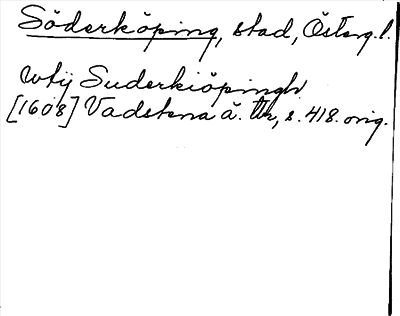 Söderköping, stad, Österg.l.
wtij Suderkiöpingh
[1608] Vadstena ä. tb, s. 418. orig.